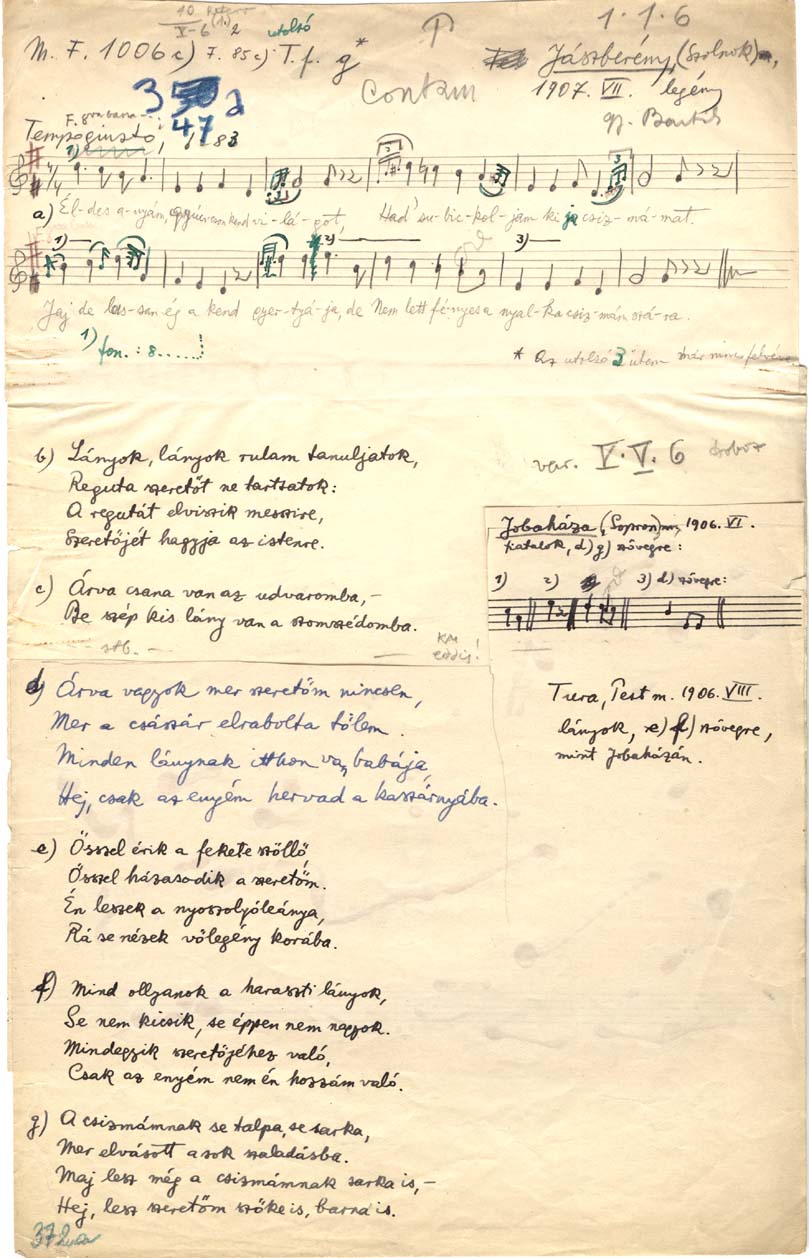 10
V-6 (1.) 2
utolsó
1.1.6
M. F. 1006 c) F. 85 c) T. f. g*
Jászberény, (Szolnok),
Contam
1907. VII. legény
gy. Bartók
Tempo giusto,
a) Él-des a-nyám, kend vi-lá-got, Had' su-bic-kol-jam ki ja csiz-má-mat.
1) 2) 3)
Jaj de las-san ég a kend gyer-tyá-ja, de Nem lett fé-nyes a nyal-ka csiz-mám szá-ra.
1) fon. : 8.....
* Az utolsó 3 ütem már nincs felvéve
b) Lányok, lányok rulam tanuljatok,
Reguta szeretőt ne tartsatok:
A regutát elviszik messzire,
Szeretőjét hagyja az istenre.
var. V.V.6
c) Árva csana van az udvaromba, –
Be szép kis lány van a szomszédomba.
stb. –
Jobaháza (Sopron) m, 1906. VI.
fiatalok, d) g) szövegre:
1) 2) 3) d) szövegre:
d) Árva vagyok mer szeretőm nincsen,
Mer a császár elrabolta tőlem.
Minden lánynak itthon van babája,
Hej, csak az enyém hervad a kaszárnyába.
Tura, Pest m. 1906. VIII.
lányok, e) f) szövegre,
mint Jobaházán.
e) Ősszel érik a fekete szőllő,
Ősszel házasodik a szeretőm.
Én leszek a nyoszolyóleánya,
Rá se nézek vőlegény korába.
f) Mind ollyanok a haraszti lányok,
Se nem kicsik, se éppen nem nagyok.
Mindegyik szeretőjéhez való,
Csak az enyém nem én hozzám való.
g) A csizmámnak se talpa, se sarka,
Mer elvásott a sok szaladásba.
Maj lesz még a csizmámnak sarka is, –
Hej, lesz szeretőm szőke is, barna is.